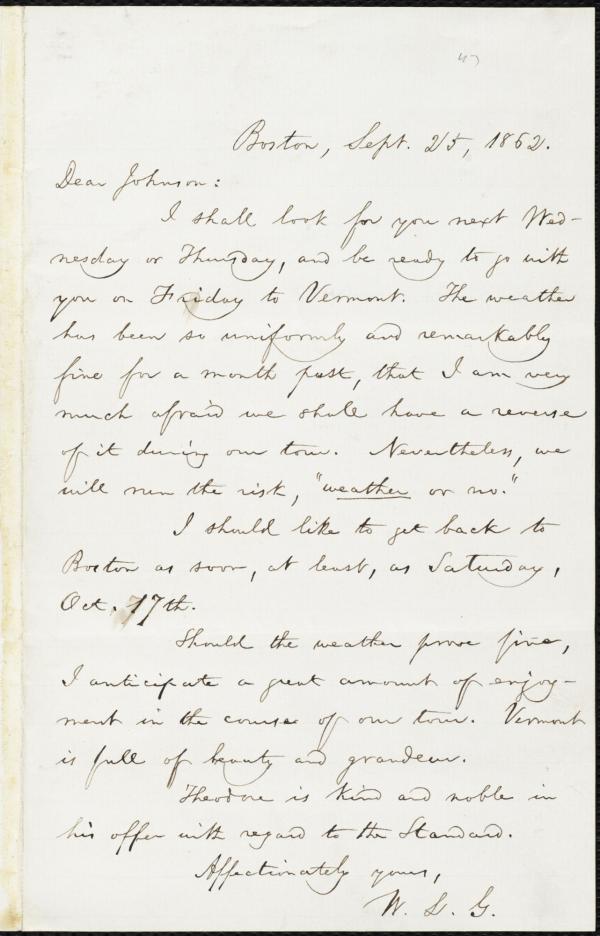 Boston, Sept. 25, 1862.
Dear Johnson:
I shall look for you next Wed-
nesday or Thursday, and be ready to go with
you on Friday to Vermont. The weather
has been so uniformly and remarkably
fine for a month past, that I am very
much afraid we shall have a reverse
of it during our tour. Nevertheless, we
will run the risk, "weather or no."
I should like to get back to
Boston as soon, at least, as Saturday,
Oct. 17th.
Should the weather prove fine,
I anticipate a great amount of enjoy-
ment in the course of our tour. Vermont
is full of beauty and grandeur.
Theodore is kind and noble in
his offer with regard to the Standard.
Affectionately yours,
W. L. G.